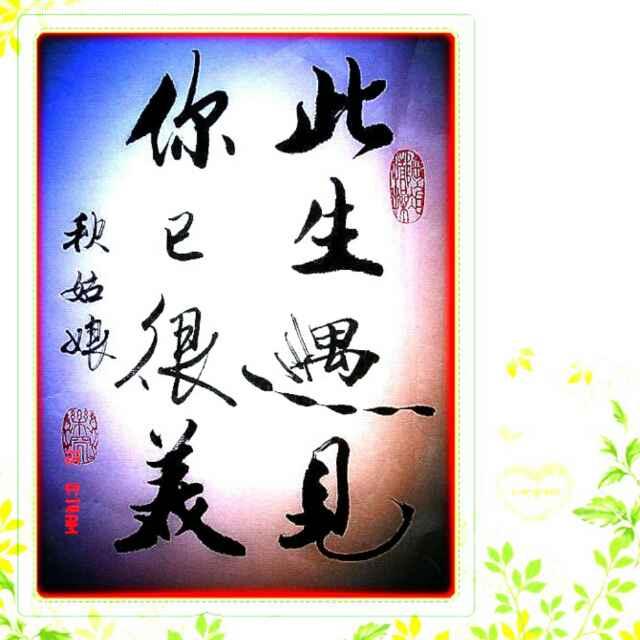 此生遇見
你已很美
秋姑娘